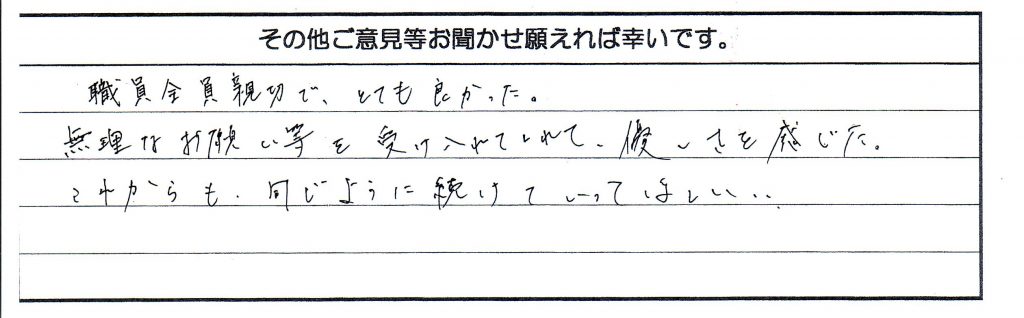 その他ご意見等お聞かせ願えれば幸いです。
職員全員親切で、とても良かった。
無理なお願い等を受け入れてくれて、優しさを感じた。
これからも、同じように続けていってほしい..